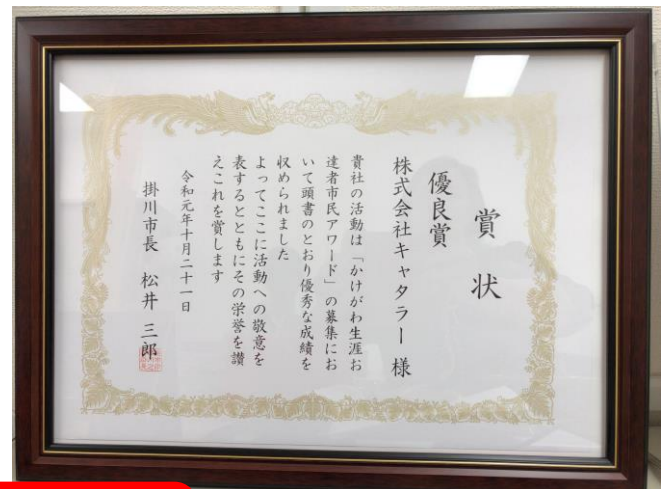 賞状
優良賞
株式会社キャタラー 様
貴社の活動は「かけがわ生涯お
達者市民アワード」の募集にお
いて頭書のとおり優秀な成績を
収められました
よってここに活動への敬意を
表するとともにその栄誉を讃
えこれを賞します
令和元年十月二十一日
掛川市長 松井 三郎